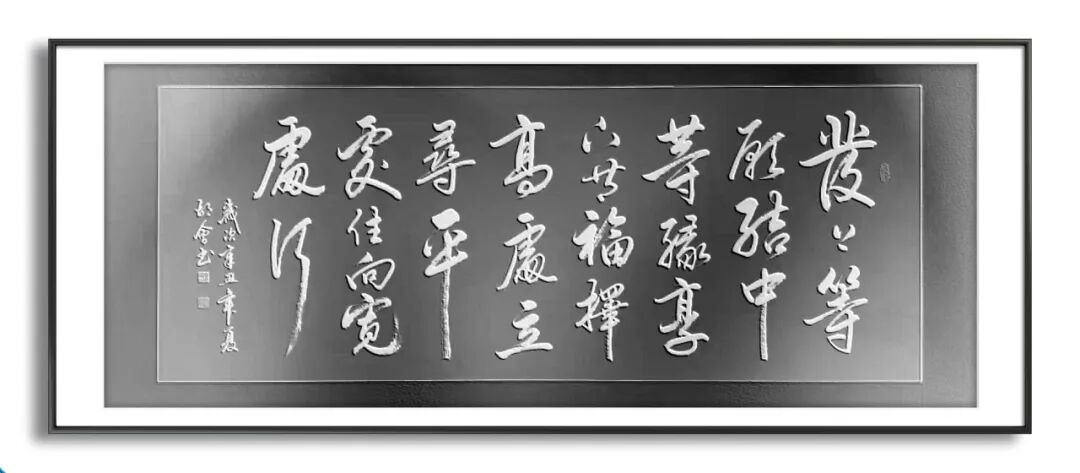 發上等
願結中
等緣享
下等福擇
高處立
尋平
處住向寬
處行
歲次辛丑年夏
會書